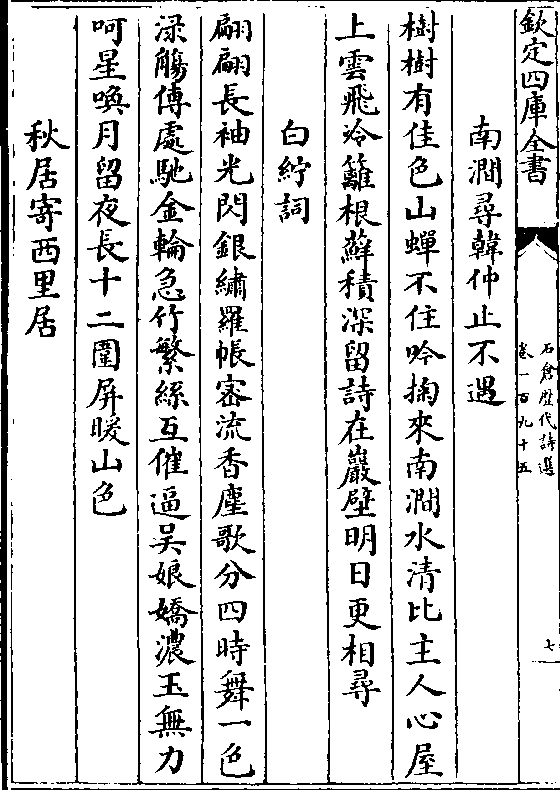 欽定四庫全書
石倉歴代詩選
卷一百九十五
七
南澗尋韓仲止不遇
樹樹有佳色山蟬不住吟掬來南澗水清比主人心屋
上雲飛冷籬根蘚積深留詩在巖壁明日更相尋
白紵詞
翩翩長袖光閃銀繡羅帳審流香塵歌分四時舞一色
渌觴傳處馳金輪急竹繁絲互催逼吴娘嬌濃玉無力
呵星喚月留夜長十二圍屏暖山色
秋居寄西里居